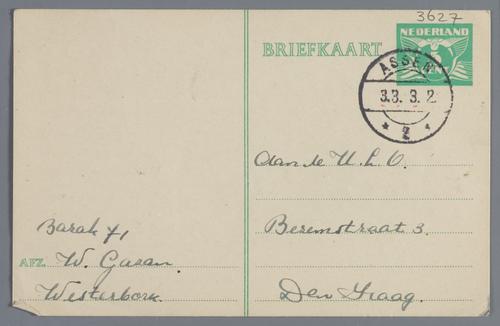 3627
NEDERLAND
BRIEFKAART
ASSEN
3.3. 3. 2
2
Aan de U.L.O.
Barak 71
Beremstraat 3.
AFZ. W. Gasan.
Westerbork.
Den Haag.